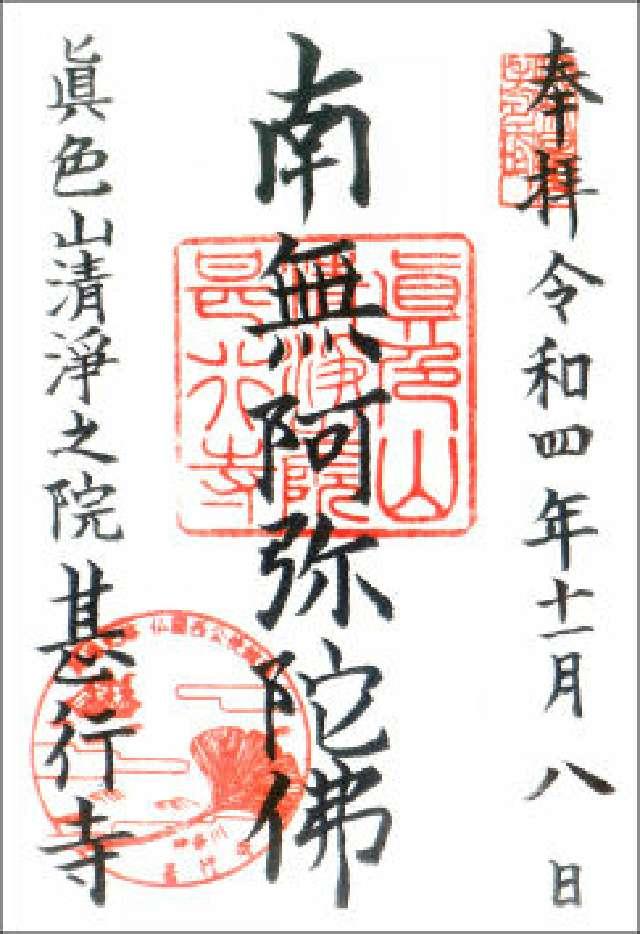 奉拝 令和四年十一月八日
南無阿弥陀佛
眞色山清淨之院 甚行寺
眞色山
清浄院
甚行寺
神奈川
甚行寺